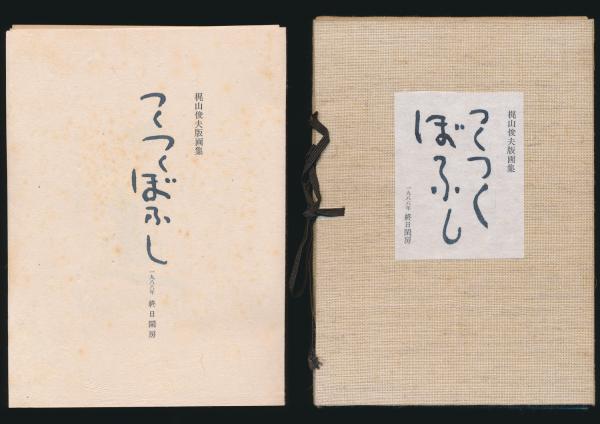 梶山俊夫版画集
つくつくぼふし
一九八六年 終日閑房
梶山俊夫版画集
つくつく
ぼふし
一九八六年 終日閑房